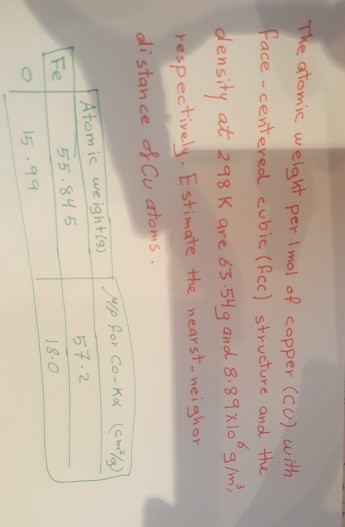 The atomic weight per 1mol of copper (CU) with
face-centered cubic (fcc) structure and the
density at 298K are 63.54g and 8.89x10⁶ g/m³,
respectively. Estimate the nearst-neighor
distance of Cu atoms.
Atomic weight(g) μ/ρ for Co-Kα (cm²/g)
Fe 55.845 57.2
O 15.99 18.0